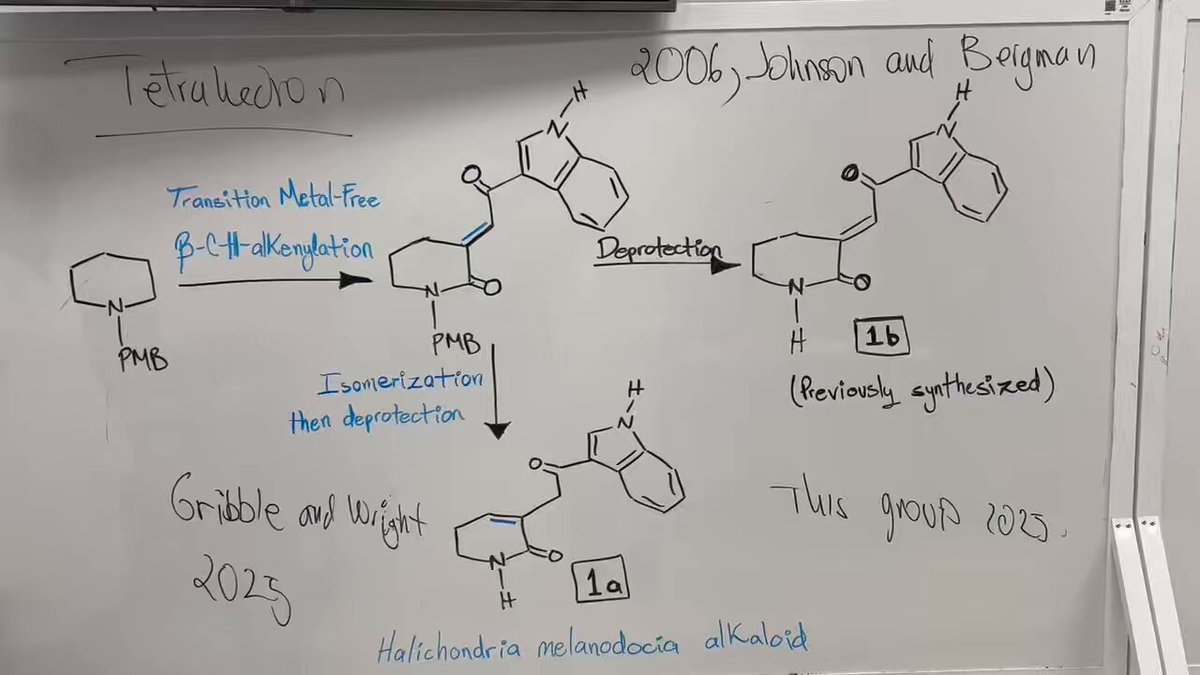 Tetrahedron
2006, Johnson and Bergman
Transition Metal-Free
β-C-H-alkenylation
N
PMB
O
N
H
N
O
PMB
Deprotection
O
N
H
N
O
H
1b
(Previously synthesized)
Isomerization
then deprotection
O
N
H
N
O
H
1a
Gribble and Wright
2025
This group 2025.
Halichondria melanodocia alkaloid